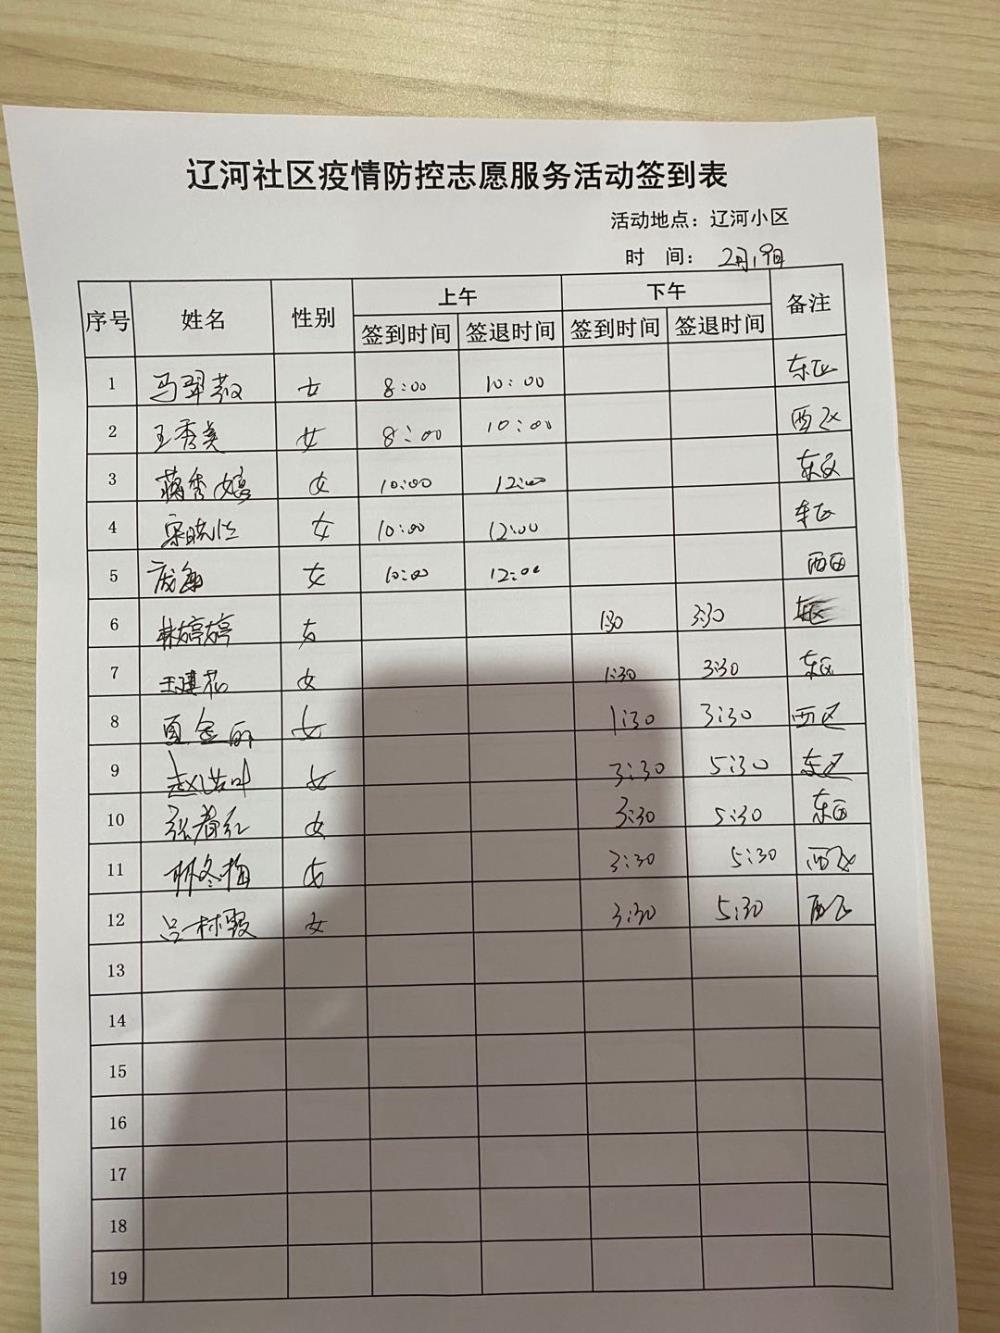 辽河社区疫情防控志愿服务活动签到表
活动地点：辽河小区
时 间： 2月19日
序号 姓名 性别 上午 下午 备注
签到时间 签退时间 签到时间 签退时间
1 马翠 女 8:00 10:00 东区
2 王秀美 女 8:00 10:00 西区
3 蒋秀婷 女 10:00 12:00 东区
4 宋晓 女 10:00 12:00 东区
5 女 10:00 12:00 西区
6 林婷婷 女 1:30 3:30 东区
7 王建花 女 1:30 3:30 东区
8 夏金丽 女 1:30 3:30 西区
9 赵叶 女 3:30 5:30 东区
10 张春红 女 3:30 5:30 东区
11 林冬梅 女 3:30 5:30 西区
12 吕林霞 女 3:30 5:30 西区
13
14
15
16
17
18
19